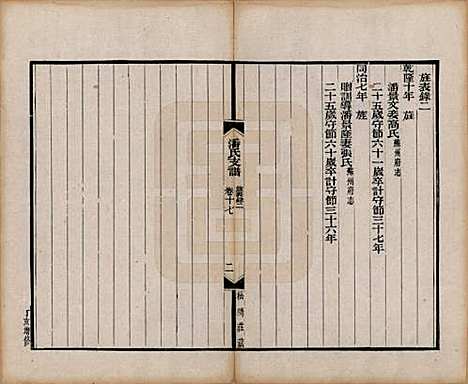 旌表錄二
乾隆十年 旌
潘景文妾高氏 蘇州府志
二十五歲守節六十一歲卒計守節三十七年
同治七年 旌
贈訓導潘景隆妻張氏 蘇州府志
二十五歲守節六十歲卒計守節三十六年
潘氏支譜
卷十七
二
松鱗莊